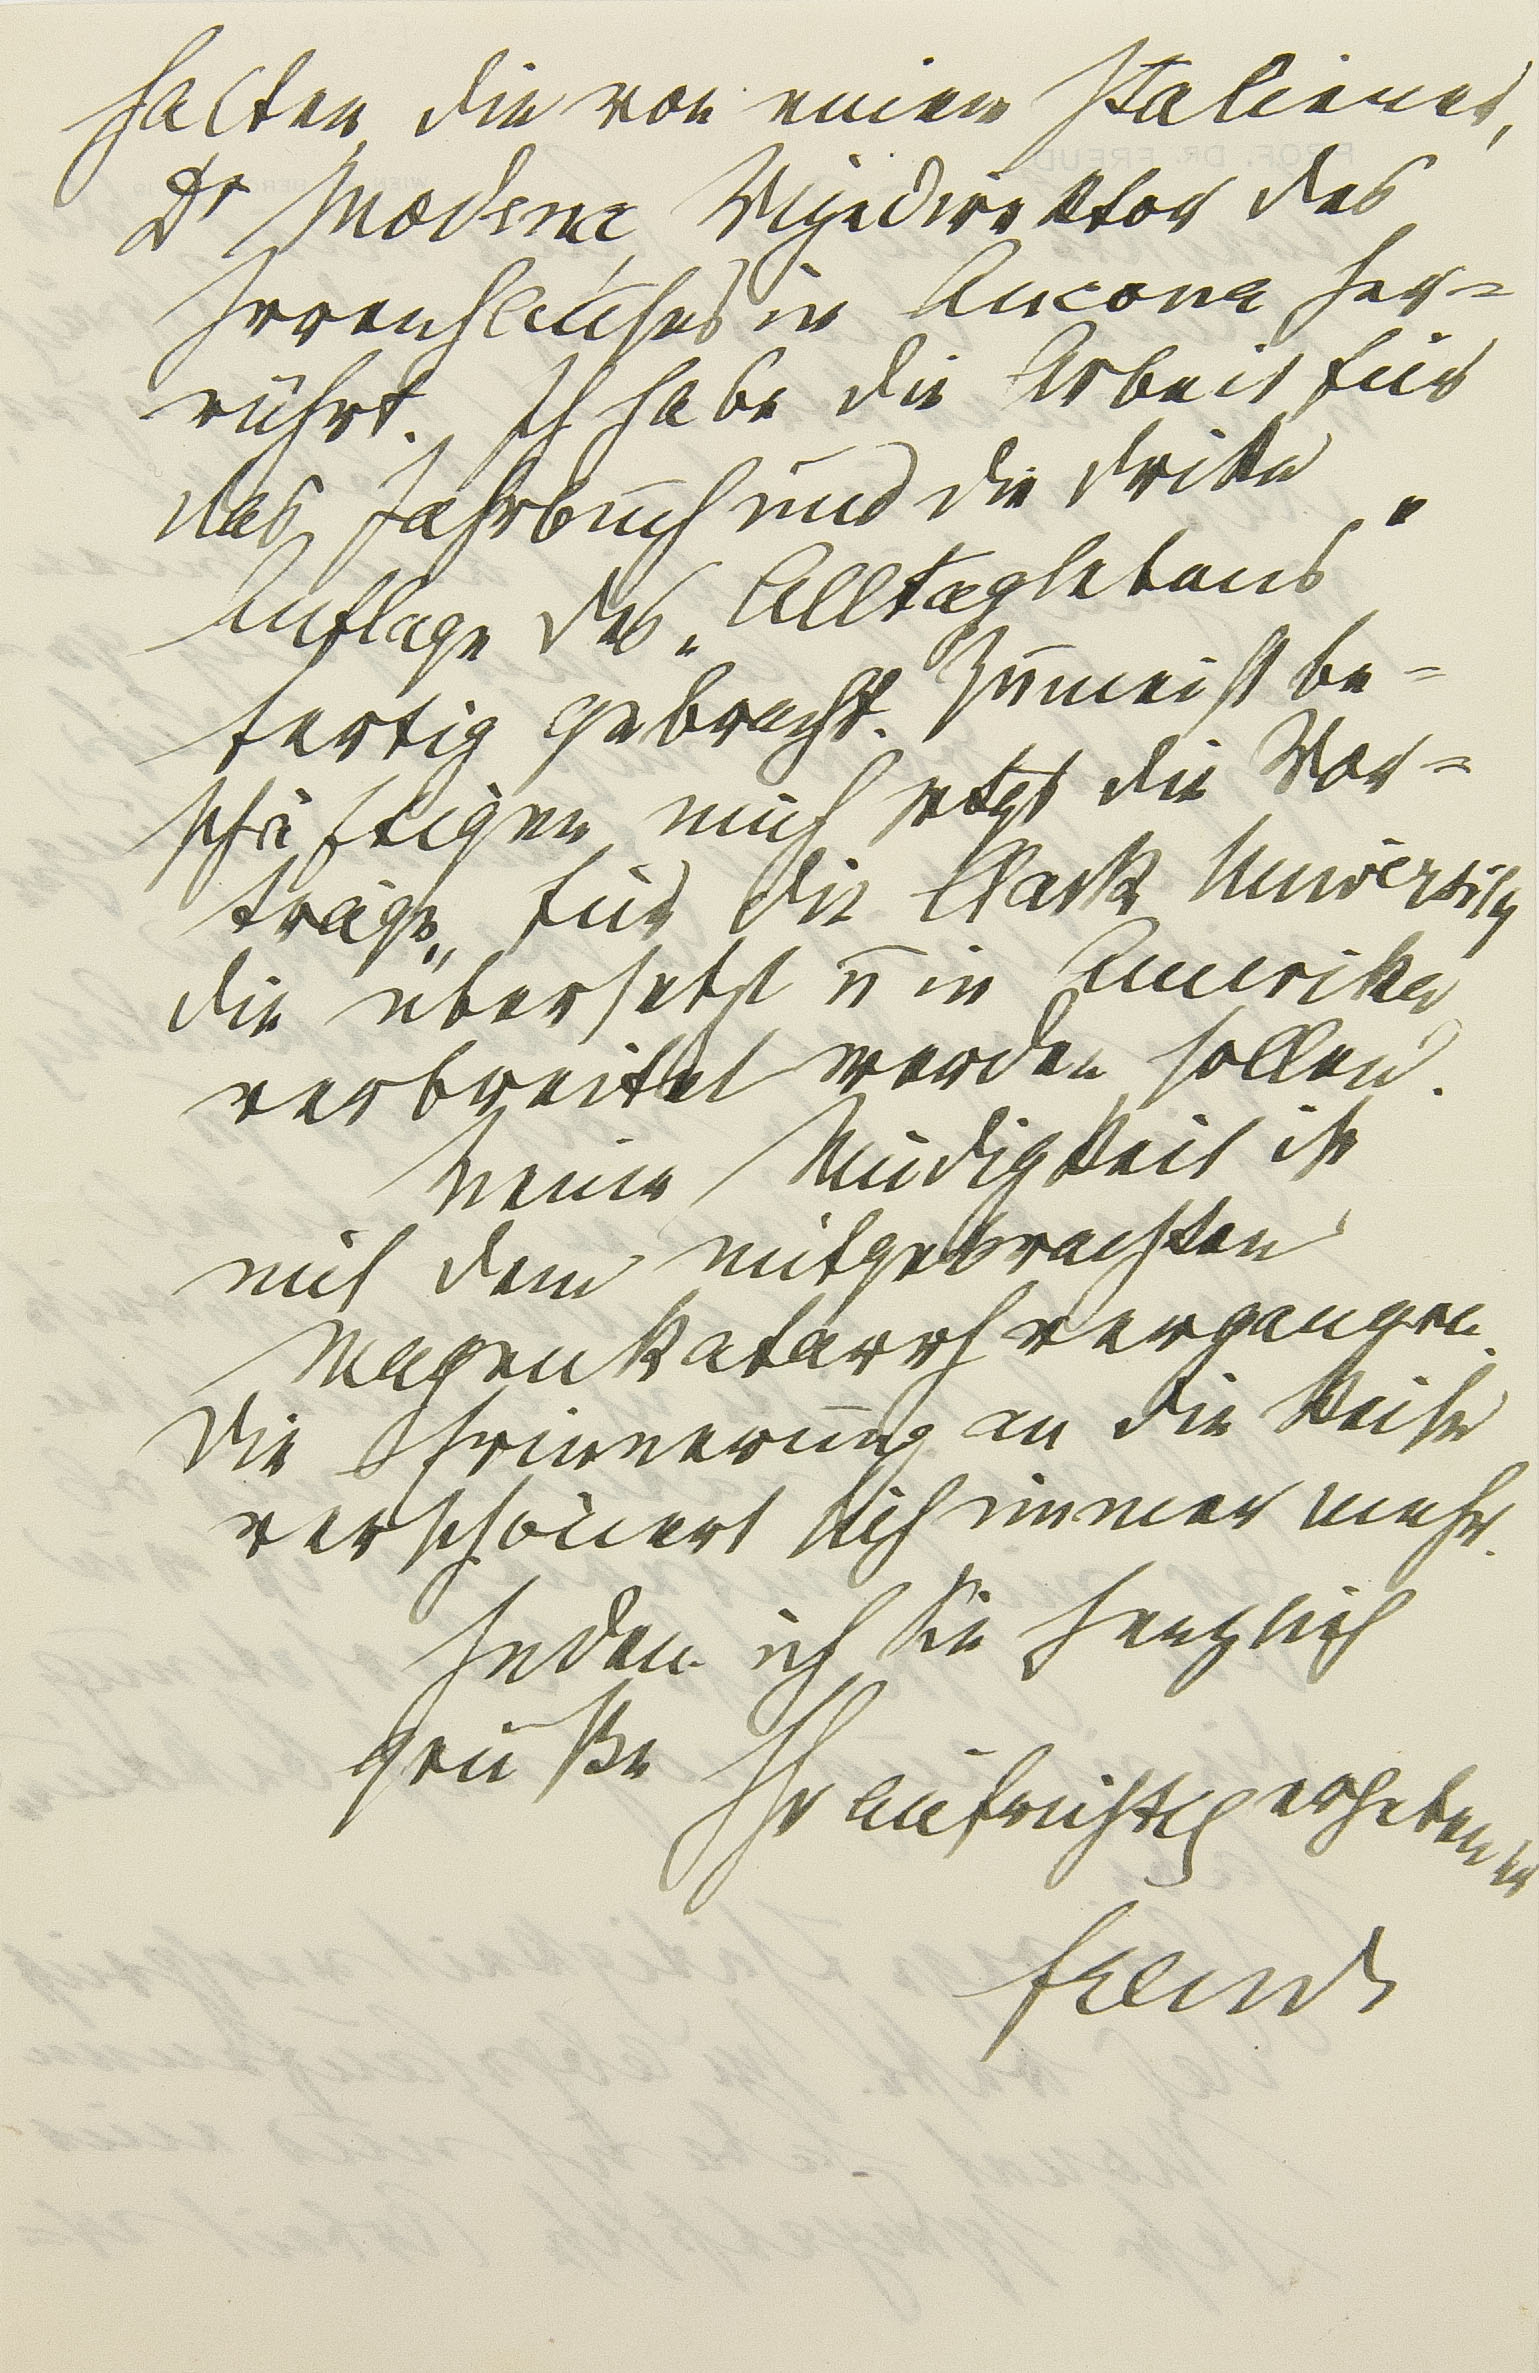 halten, die von einem Italiener,
Dr Modena, Vizedirektor des
Irrenhauses in Ancona her=
rührt. Ich habe die Arbeit für
das Jahrbuch und die dritte
Auflage des „Alltagslebens“
fertig gebracht. Zumeist be=
schäftigen mich jetzt die Vor=
träge für die Clark University
die übersetzt u in Amerika
verbreitet werden sollen.
Meine Müdigkeit ist
mit dem mitgebrachten
Magenkatarrh vergangen.
Die Erinnerung an die Reise
verschönert sich immer mehr.
Indem ich Sie herzlich
grüße Ihr aufrichtig ergebener
Freud